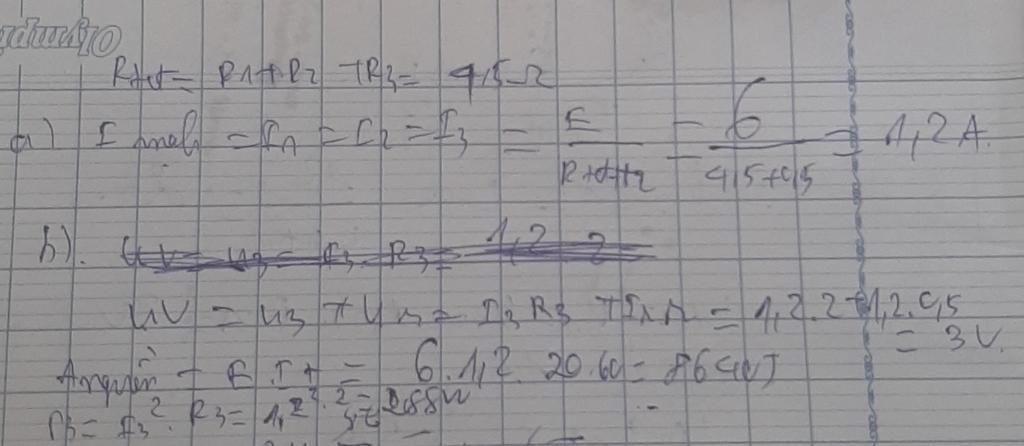 Rtđ = R1 + R2 + R3 = 4,5 Ω
a) I mạch = I1 = I2 = I3 = E / Rtđ + r = 6 / 4,5 + 0,5 = 1,2 A.
b). UV = U3 = I3 R3 = 1,2 2
UV = U3 + U1 = I3 R3 + I1 R1 = 1,2.2 + 1,2.0,5
= 3V.
Anguồn = E.I.t = 6.1,2.20.60 = 8640J
P3 = I3². R3 = 1,2².2 = 2,88W